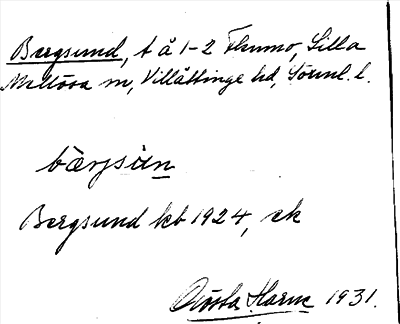 Bergsund, t å 1-2 Thumo, Lilla
Mellösa sn, Villåttinge hd, Sörml. l.
bærjsùn
Bergsund kb 1924, ek
Gösta Harm 1931.